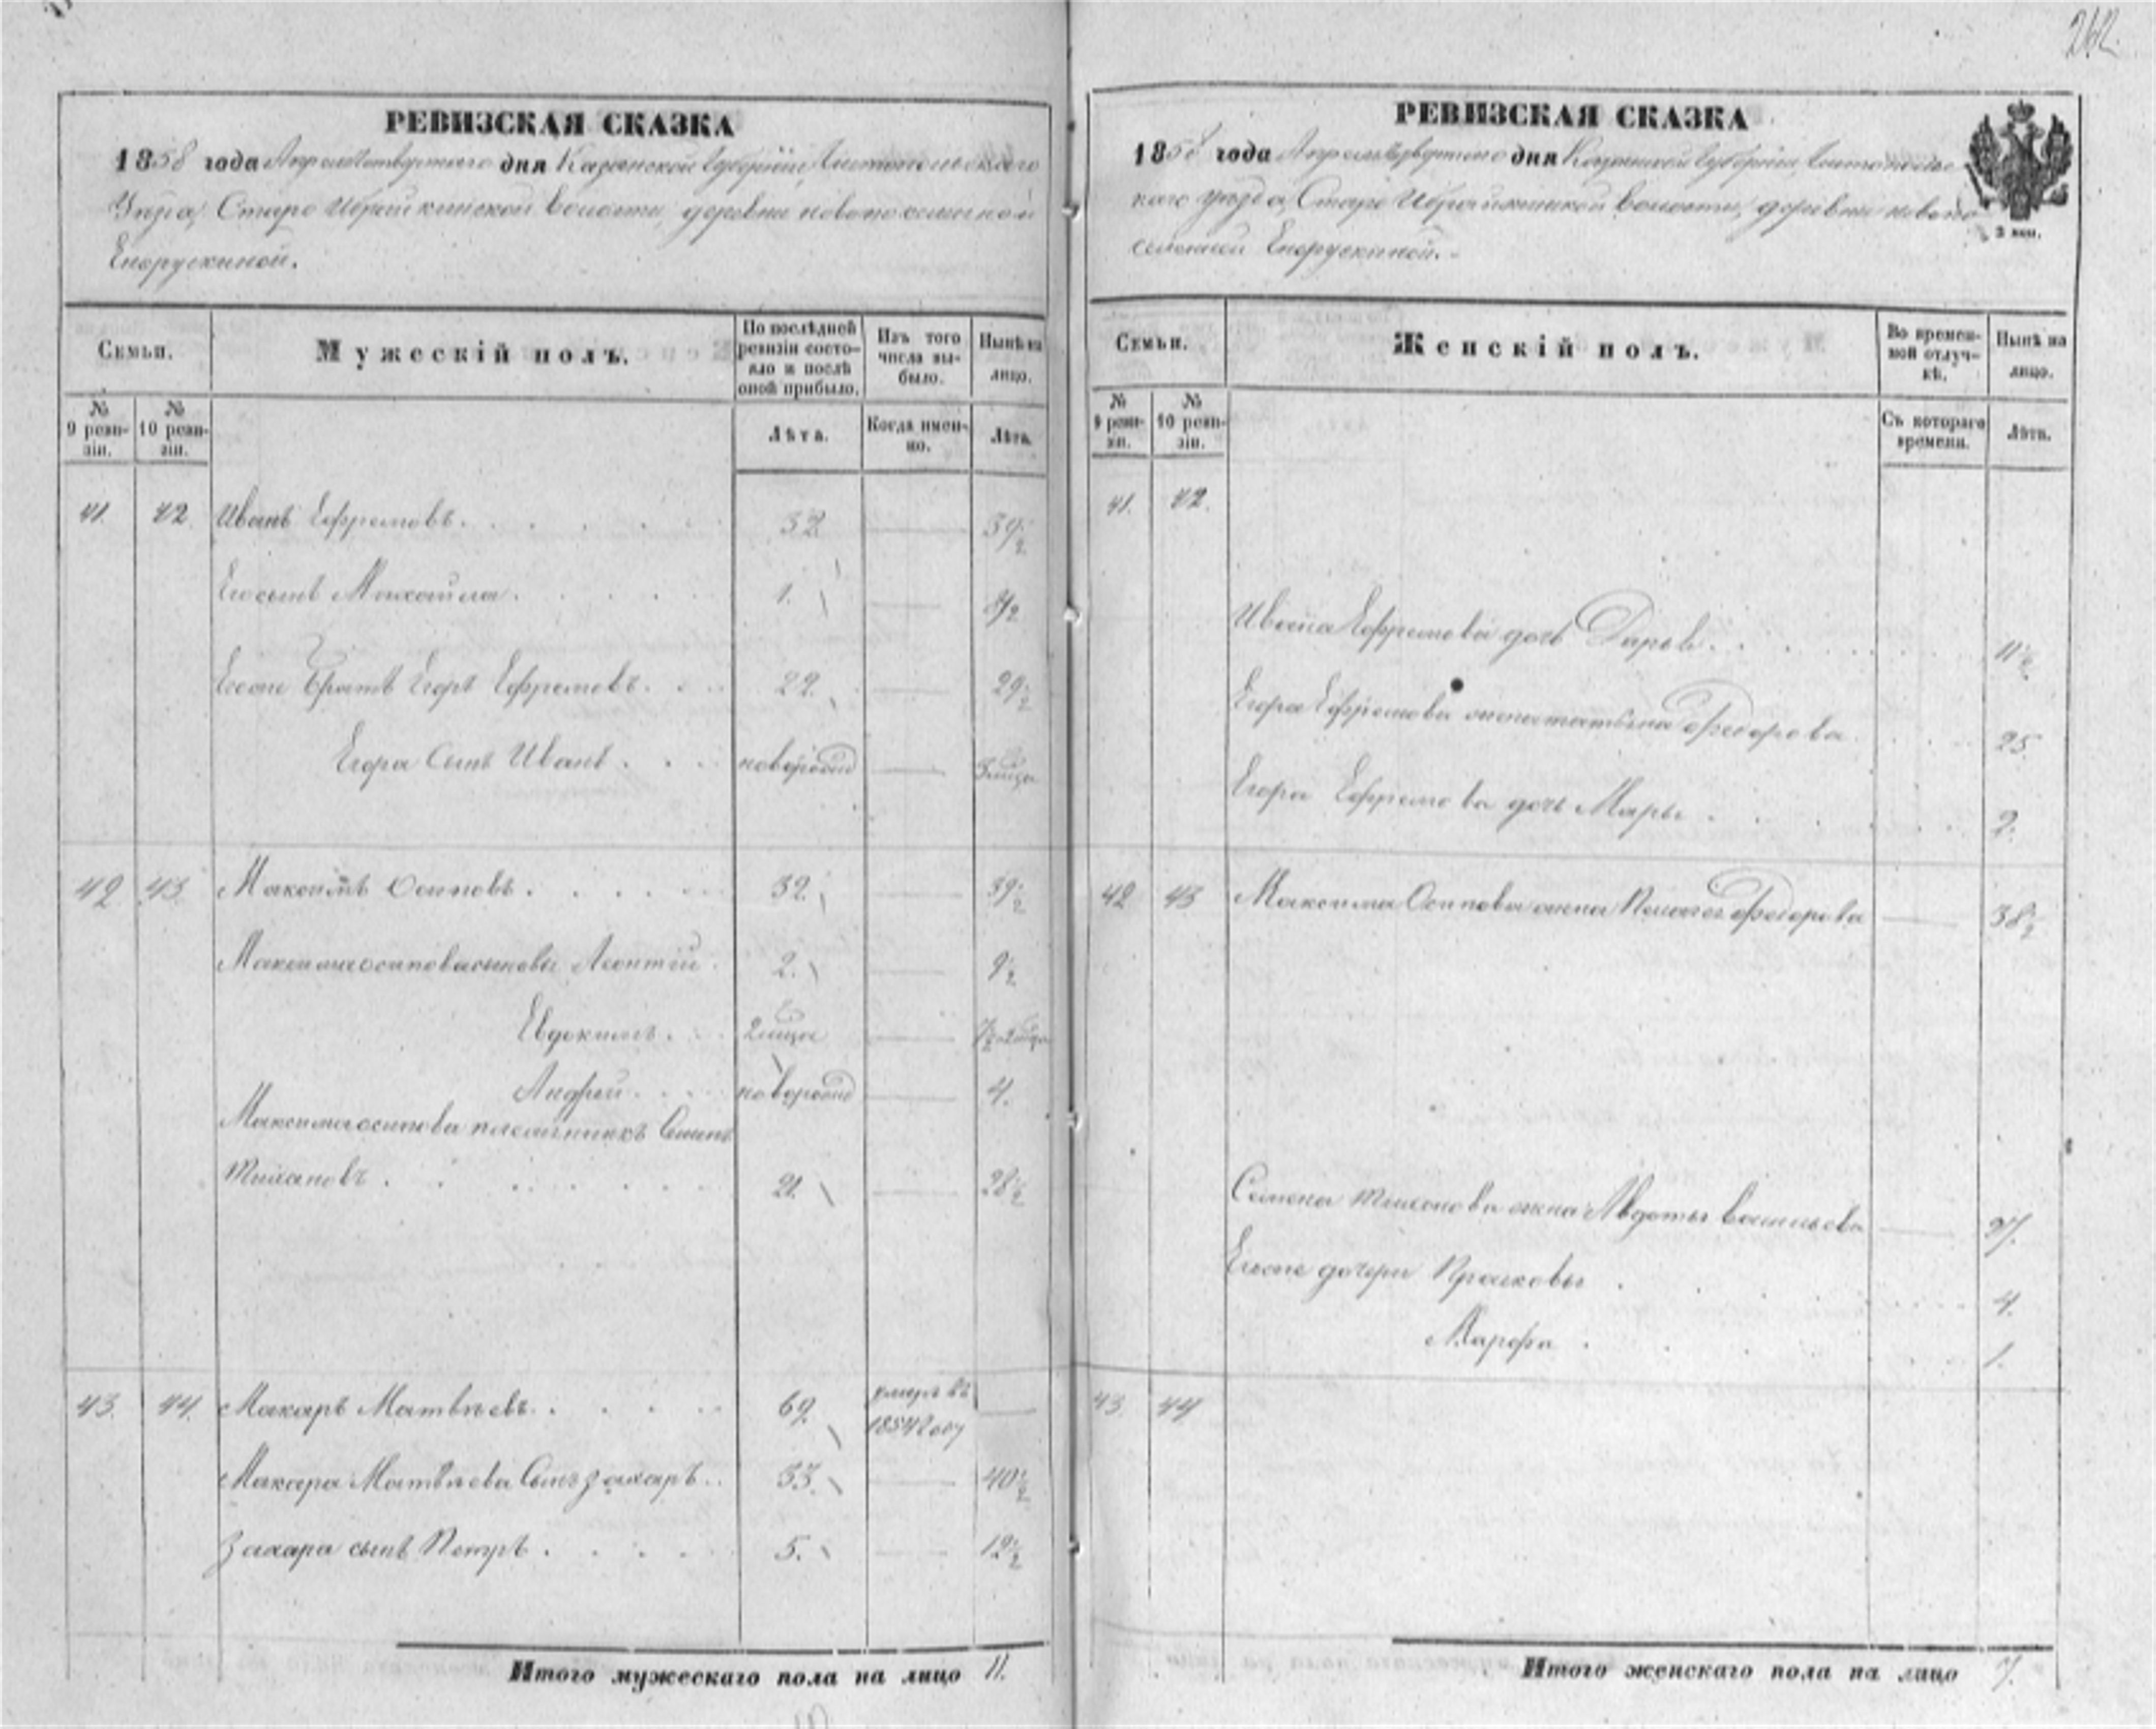 262
РЕВИЗСКАЯ СКАЗКА
1858 года Апреля четвертаго дня Казанской Губерніи, Чистопольскаго
Уезда, Старо Ибрайкинской волости, деревни новопоселенной
Енорускиной.
Семьи.
Мужескій полъ.
По послѣдней ревизіи состояло и послѣ оной прибыло.
Изъ того числа выбыло.
Нынѣ на лицо.
№ 9 ревизіи.
№ 10 ревизіи.
Лѣта.
Когда именно.
Лѣта.
41. 42. Иванъ Ефремовъ. 32 39½
Его сынъ Михайла. 1. 8½
Егоже братъ Егоръ Ефремовъ. 22. 29½
Егора сынъ Иванъ. новорожд 3 мѣся
42 43. Максимъ Осиповъ. 32. 39½
Максима осипова сыновья Леонтій. 2. 9½
Евдокимъ. 2 мѣся
Андрей. новорожд 4.
Максима осипова племянникъ Семенъ
Тихановъ. 21. 28½
43. 44. Макаръ Матвѣевъ. 69. умеръ въ
1854 году
Макара Матвѣева сынъ захаръ. 33. 40½
Захара сынъ Петръ. 5. 12½
Итого мужескаго пола на лицо 11.
РЕВИЗСКАЯ СКАЗКА
1858 года Апреля четвертаго дня Казанской Губерніи, Чистопольс
каго уезда, Старо Ибрайкинской волости, деревни новопо
селенной Енорускиной.
3 коп.
Семьи.
Женскій полъ.
Во временной отлучкѣ.
Нынѣ на лицо.
№ 9 ревизіи.
№ 10 ревизіи.
Съ котораго времени.
Лѣта.
41. 42.
Ивана Ефремова дочь Дарья. 11½
Егора Ефремова жена татьяна Федорова 25
Егора Ефремова дочь Марья 2.
42 43 Максима Осипова жена Пелагея Федорова 38½
Семена тихонова жена Авдотья васильева 27.
Егоже дочери Прасковья 4.
Марфа 1.
43. 44
Итого женскаго пола на лицо 7.